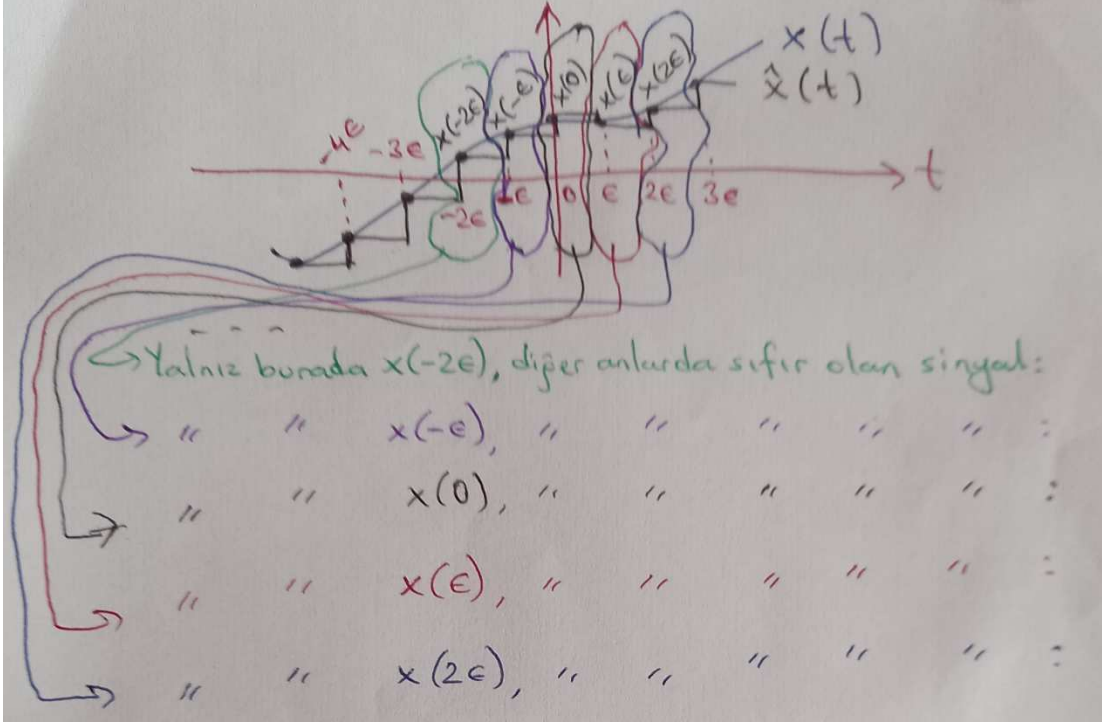 x(t)
x̂(t)
x(-2ϵ) x(-ϵ) x(0) x(ϵ) x(2ϵ)
-4ϵ -3ϵ -2ϵ 0 ϵ 2ϵ 3ϵ t
- - -
Yalnız burada x(-2ϵ), diğer anlarda sıfır olan sinyal:
" " x(-ϵ), " " " " " :
" " x(0), " " " " " :
" " x(ϵ), " " " " " :
" " x(2ϵ), " " " " " :